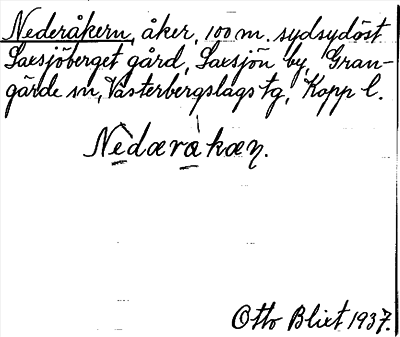 Nederåkern, åker, 100 m. sydsydöst
Saxsjöberget gård, Saxsjön by, Gran-
gärde sn, Västerbergslags tg, Kopp l.
Nèdæràkæɳ.
Otto Blixt 1937.